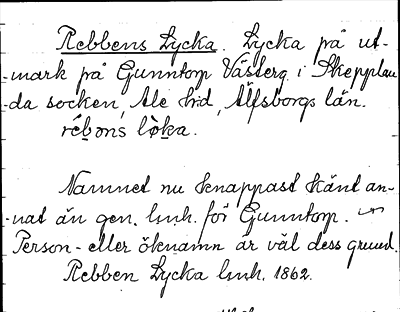 Rebbens Lycka. Lycka på ut-
-mark på Gunntorp Västerg. i Skepplan-
-da socken, Ale hd, Älfsborgs län.
rébɔns lỳka.
Namnet nu knappast känt an-
-nat än gen. lmh. för Gunntorp.
Person- eller öknamn är väl dess grund.
Rebben Lycka lmh. 1862.